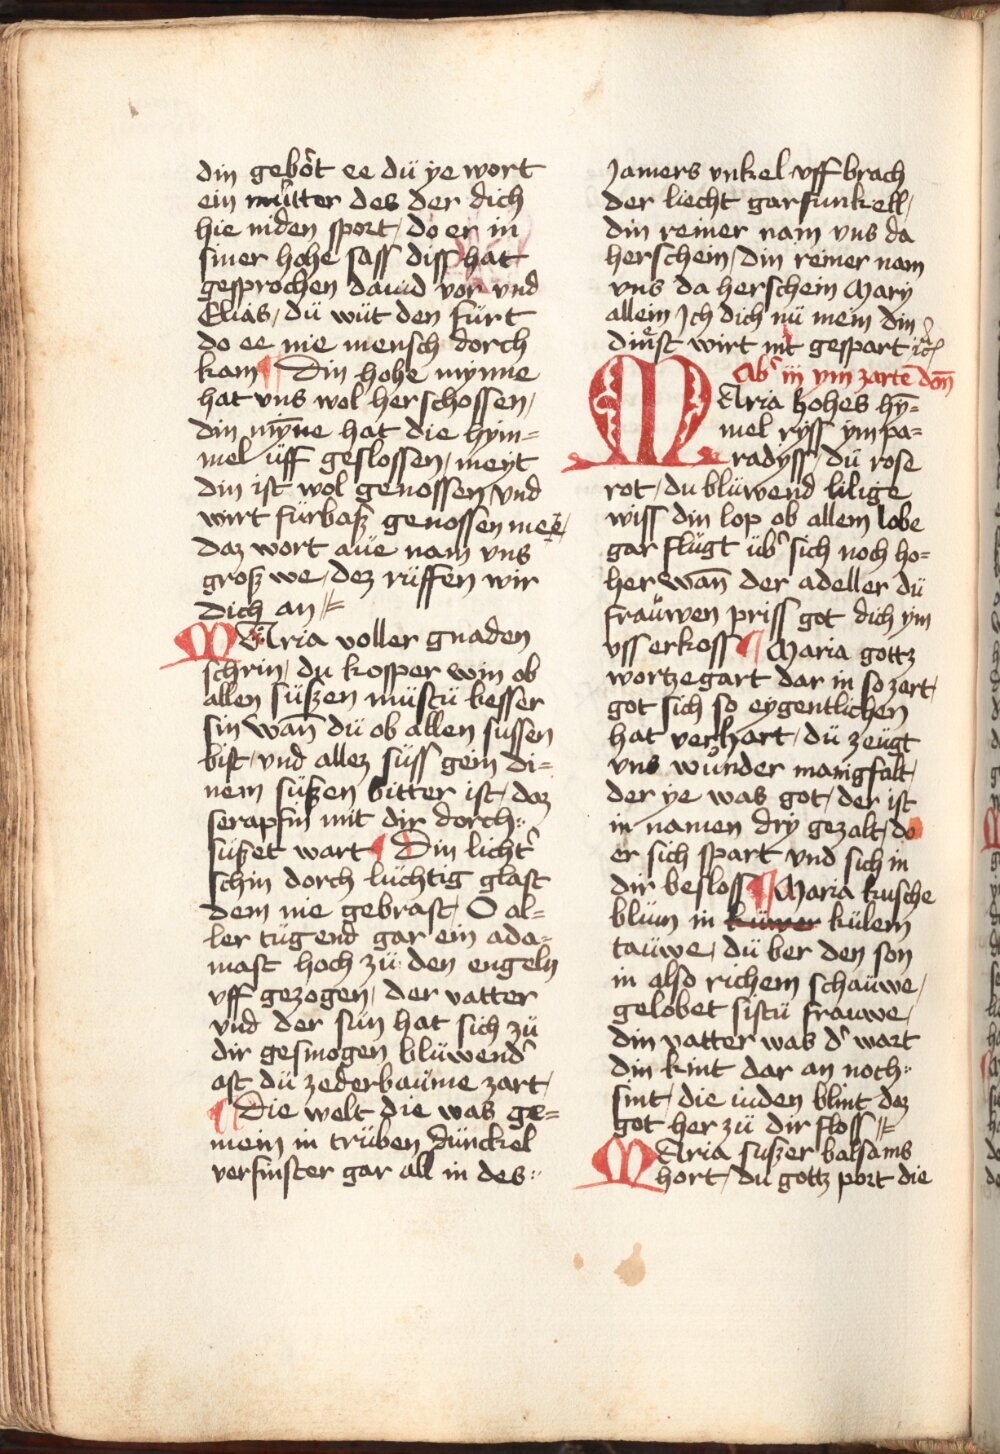 din gebot ee dü ye wort
ein mütter des der dich
hie niden sport / do er in
siner hohe sass diss hat
gesprochen dauid vor vnd
Elias / dü wüt den fürt
do ee nie mensch dorch
kam ¶ Din hohe mynne
hat vns wol herschossen /
din mÿne hat die hym=
mel üff geslossen / meyt
din ist wol genossen / vnd
wirt fürbasz genossen mee /
daz wort aüe nam vns
grosz we / dez rüffen wir
dich an //=
MAria voller gnaden
schrin / du kosper win ob
allen süszen müstü besser
sin wan̄ dü ob allen sussen
bist / vnd allez süss gein di=
nem süszen bitter ist / daz
serapfin mit dir dorch:
süszet wart ¶ Din licht᾽
schin dorch lüchtig glast
dem nie gebrast / O al=
ler tügend gar ein ada=
mast hoch zü den engeln
vff gezogen / der vatter
vnd der sün hat sich zü
dir gesmogen blüwend᾽
ast dü zederbaüme zart /
¶ Die welt die was ge=
mein in trüben dünckel
verfinster gar all in des:
Jamers vnkel vff brach
der liecht garfunkell /
din reiner nam vns da
herschein / din reiner nam
vns da herschein Mary
allein Ich dich nü mein din
dinst wirt nit gespart ꝛc̄
Ab᾽ iij ym zarte᷍ don̄
MAria hohes hy̅=
mel ryss ym pa=
radyss / dü rose
rot / du blüwend lilige
wiss din lop ob allem lobe
gar flügt üb᾽ sich noch ho=
her wan̄ der adeller dü
fraüwen priss got dich ym
vss erkoss ¶ Maria gottz
wortzegart dar in so zert /
got sich so eygentlichen
hat verhart / dü zeügt
vns wůnder manigfalt /
der ye was got / der ist
in namen dry gezalt / do
er sich spart vnd sich in
dir besloss ¶ Maria kusche
blům in küwer külem
taüwe / dü ber den son
in also richem schaüwe /
gelobet sistü frauwe /
din vatter was d᾽ wart
din kint dar an noch:
sint / die iuden blint dez
got her zü dir floss //=
MAria suszer balsams
hort / du gottz port die